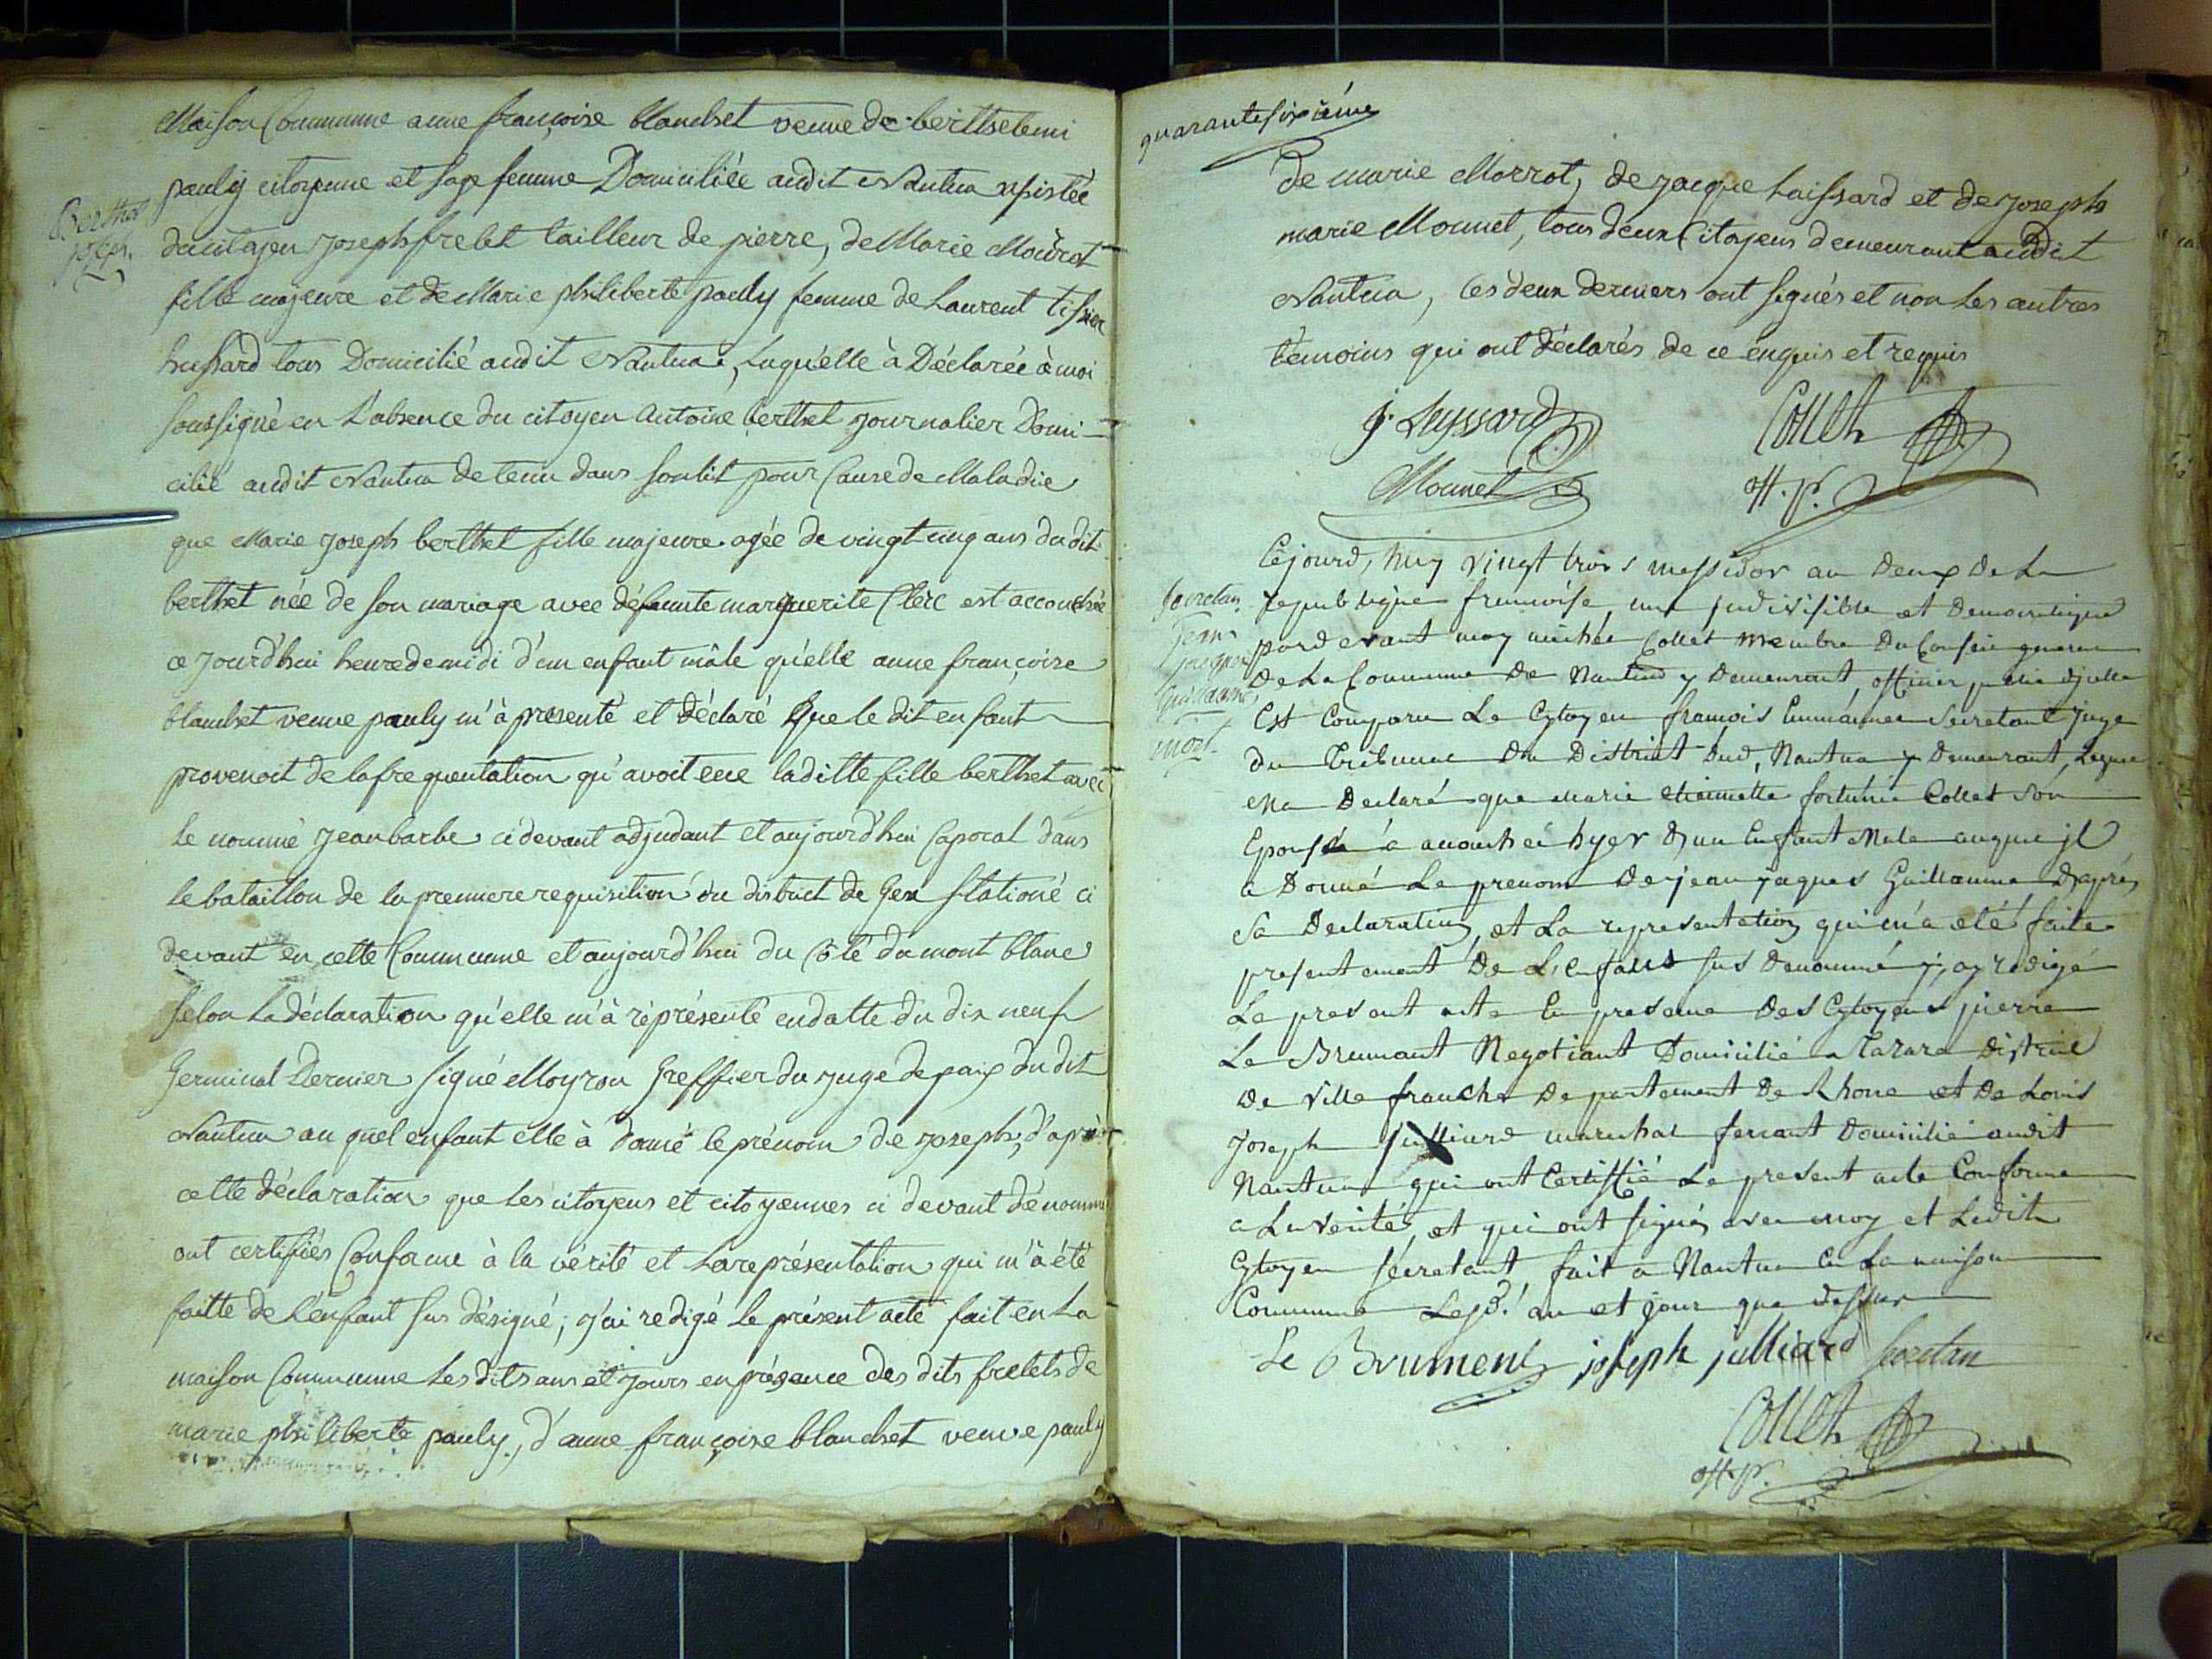 Maison Commune anne françoise blanchet veuve de berthelemi
pauly citoyenne et sage femme Domiciliée audit Nantua assistée
Berthet
joseph.
du citoyen joseph frelet tailleur de pierre, de Marie Morrot
fille majeure et de Marie philiberte pauly femme de Laurent tissier
hussard tous Domicilié audit Nantua, laqu'elle à Déclarée à moi
soussigné en l'absence du citoyen antoine berthet journalier Domi-
cilié audit Nantua detenu dans son lit pour Cause de Maladie
que Marie joseph berthet fille majeure agée de vingt cinq ans dudit
berthet née de son mariage avec défeunte marguerite Clerc est accouchée
ce jourd'hui heure de midi d'un enfant mâle qu'elle anne françoise
blanchet veuve pauly m'à presenté et déclaré Que le dit enfant
provenoit de la frequentation qu'avoit eue laditte fille berthet avec
le nommé jean barbe ci devant adjudant et aujourd'hui Caporal dans
le bataillon de la premiere requisition du district de Gex stationé ci
devant en cette Commune et aujourd'hui du Côté du mont blanc
selon la déclaration qu'elle m'à réprésenté en datte du dix neuf
Germinal Dernier signé Moyron Greffier du juge de paix du dit
Nantua au quel enfant elle à donné le prénom de joseph, d'après
cette déclaration que les citoyens et citoyennes ci devant dénommé
ont certifiés Conforme à la vérité et la représentation qui m'à été
faitte de l'enfant sus désigné; j'ai redigé le présent acte fait en la
maison Commune les dits ans et jours en présence des dits frelets de
marie philiberte pauly, d'anne françoise blanchet veuve pauly
quarante sixième
de marie Morrot, de jacque Laissard et de joseph
marie Mounet, tous deux Citoyens demeurant audit
Nantua, les deux derniers ont signés et non les autres
témoins qui ont déclarés de ce enquis et requis
J. Leyssard Collet
Mounet off. p.
Cejourd, huy vingt trois messidor an Deux De La
Secretan
Jean
jacques
Guillaume
mort
republique francoise, une indivisible et Democratique
pardevant moy michel Collet membre Du Conseil general
De La Commune De Nantua y Demeurant, officier public
Est Comparu Le Cytoyen francois Emmanuel Secretant juge
du Tribunal Du District Dud. Nantua y Demeurant, Lequel
ma Declaré que marie etiennette fortunée Collet son
Epouse a accouchéé hyer D'un Enfant Male auquel jl
a Donné Le prenom De jean jaques Guillaume D'après
sa Declaration, et La representation qui m'a eté faite
presentement De L'enfant sus Denommé j'ay redigé
Le present acte En presence Des Cytoyens pierre
Le Brumant Negotiant Domicilié a Tarare District
De Ville franche Departement De Rhone et De Louis
Joseph julliard marechal ferrant Domicilié audit
Nantua qui ont Certiffié Le present acte Conforme
a La verité, et qui ont signés avec moy et Ledit
Cytoyen secretant, fait a Nantua En La maison
Commune Lesd. an et jour que dessus
Le Brument joseph julliard Secretan
Collet
off. p.